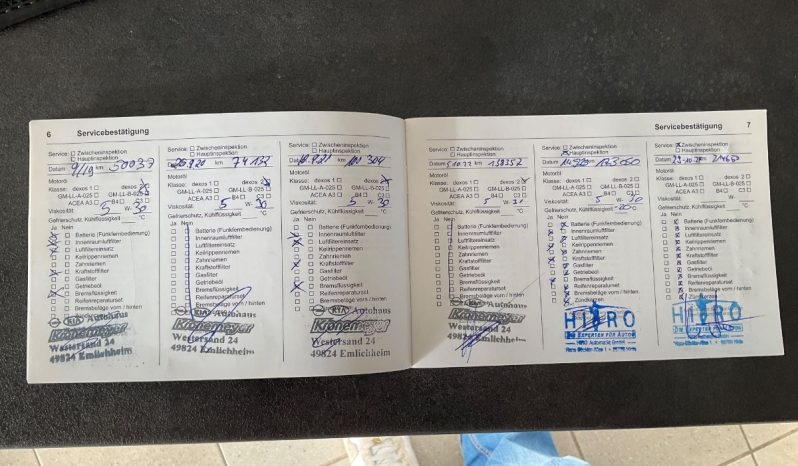 6 Servicebestätigung
Service: Zwischeninspektion
Hauptinspektion
Datum 9/19 km 50037
Motoröl
Klasse: dexos 1 dexos 2
GM-LL-A-025 GM-LL-B-025
ACEA A3 B4 C3
Viskosität: 5 W- 30
Gefrierschutz, Kühlflüssigkeit °C
Ja Nein
Batterie (Funkfernbedienung)
Innenraumluftfilter
Luftfiltereinsatz
Keilrippenriemen
Zahnriemen
Kraftstofffilter
Gasfilter
Getriebeöl
Bremsflüssigkeit
Reifenreparaturset
Bremsbeläge vorn / hinten
KIA Autohaus
Kronemeyer
Westersand 24
49824 Emlichheim
Service: Zwischeninspektion
Hauptinspektion
km
Motoröl
Klasse: dexos 1 dexos 2
GM-LL-A-025 GM-LL-B-025
ACEA A3 B4 C3
Viskosität: 5 W- 30
Gefrierschutz, Kühlflüssigkeit °C
Ja Nein
Batterie (Funkfernbedienung)
Innenraumluftfilter
Luftfiltereinsatz
Keilrippenriemen
Zahnriemen
Kraftstofffilter
Gasfilter
Getriebeöl
Bremsflüssigkeit
Reifenreparaturset
Bremsbeläge vorn / hinten
KIA Autohaus
Kronemeyer
Westersand 24
49824 Emlichheim
Service: Zwischeninspektion
Hauptinspektion
Motoröl
Klasse: dexos 1 dexos 2
GM-LL-A-025 GM-LL-B-025
ACEA A3 B4 C3
Viskosität: 5 W- 30
Gefrierschutz, Kühlflüssigkeit °C
Ja Nein
Batterie (Funkfernbedienung)
Innenraumluftfilter
Luftfiltereinsatz
Keilrippenriemen
Zahnriemen
Kraftstofffilter
Gasfilter
Getriebeöl
Bremsflüssigkeit
Reifenreparaturset
Bremsbeläge vorn / hinten
KIA Autohaus
Kronemeyer
Westersand 24
49824 Emlichheim
Servicebestätigung 7
Service: Zwischeninspektion
Hauptinspektion
Datum 5.10.22 km 138357
Motoröl
Klasse: dexos 1 dexos 2
GM-LL-A-025 GM-LL-B-025
ACEA A3 B4 C3
Viskosität: 5 W- 30
Gefrierschutz, Kühlflüssigkeit °C
Ja Nein
Batterie (Funkfernbedienung)
Innenraumluftfilter
Luftfiltereinsatz
Keilrippenriemen
Zahnriemen
Kraftstofffilter
Gasfilter
Getriebeöl
Bremsflüssigkeit
Reifenreparaturset
Bremsbeläge vorn / hinten
KIA Autohaus
Kronemeyer
Westersand 24
49824 Emlichheim
Service: Zwischeninspektion
Hauptinspektion
Motoröl
Klasse: dexos 1 dexos 2
GM-LL-A-025 GM-LL-B-025
ACEA A3 B4 C3
Viskosität: 5 W- 30
Gefrierschutz, Kühlflüssigkeit °C
Ja Nein
Batterie (Funkfernbedienung)
Innenraumluftfilter
Luftfiltereinsatz
Keilrippenriemen
Zahnriemen
Kraftstofffilter
Gasfilter
Getriebeöl
Bremsflüssigkeit
Reifenreparaturset
Bremsbeläge vorn / hinten
Zündkerzen
HIRO
Service: Zwischeninspektion
Hauptinspektion
Motoröl
Klasse: dexos 1 dexos 2
GM-LL-A-025 GM-LL-B-025
ACEA A3 B4 C3
Viskosität: W-
Gefrierschutz, Kühlflüssigkeit °C
Ja Nein
Batterie (Funkfernbedienung)
Innenraumluftfilter
Luftfiltereinsatz
Keilrippenriemen
Zahnriemen
Kraftstofffilter
Gasfilter
Getriebeöl
Bremsflüssigkeit
Reifenreparaturset
Bremsbeläge vorn / hinten
Zündkerzen